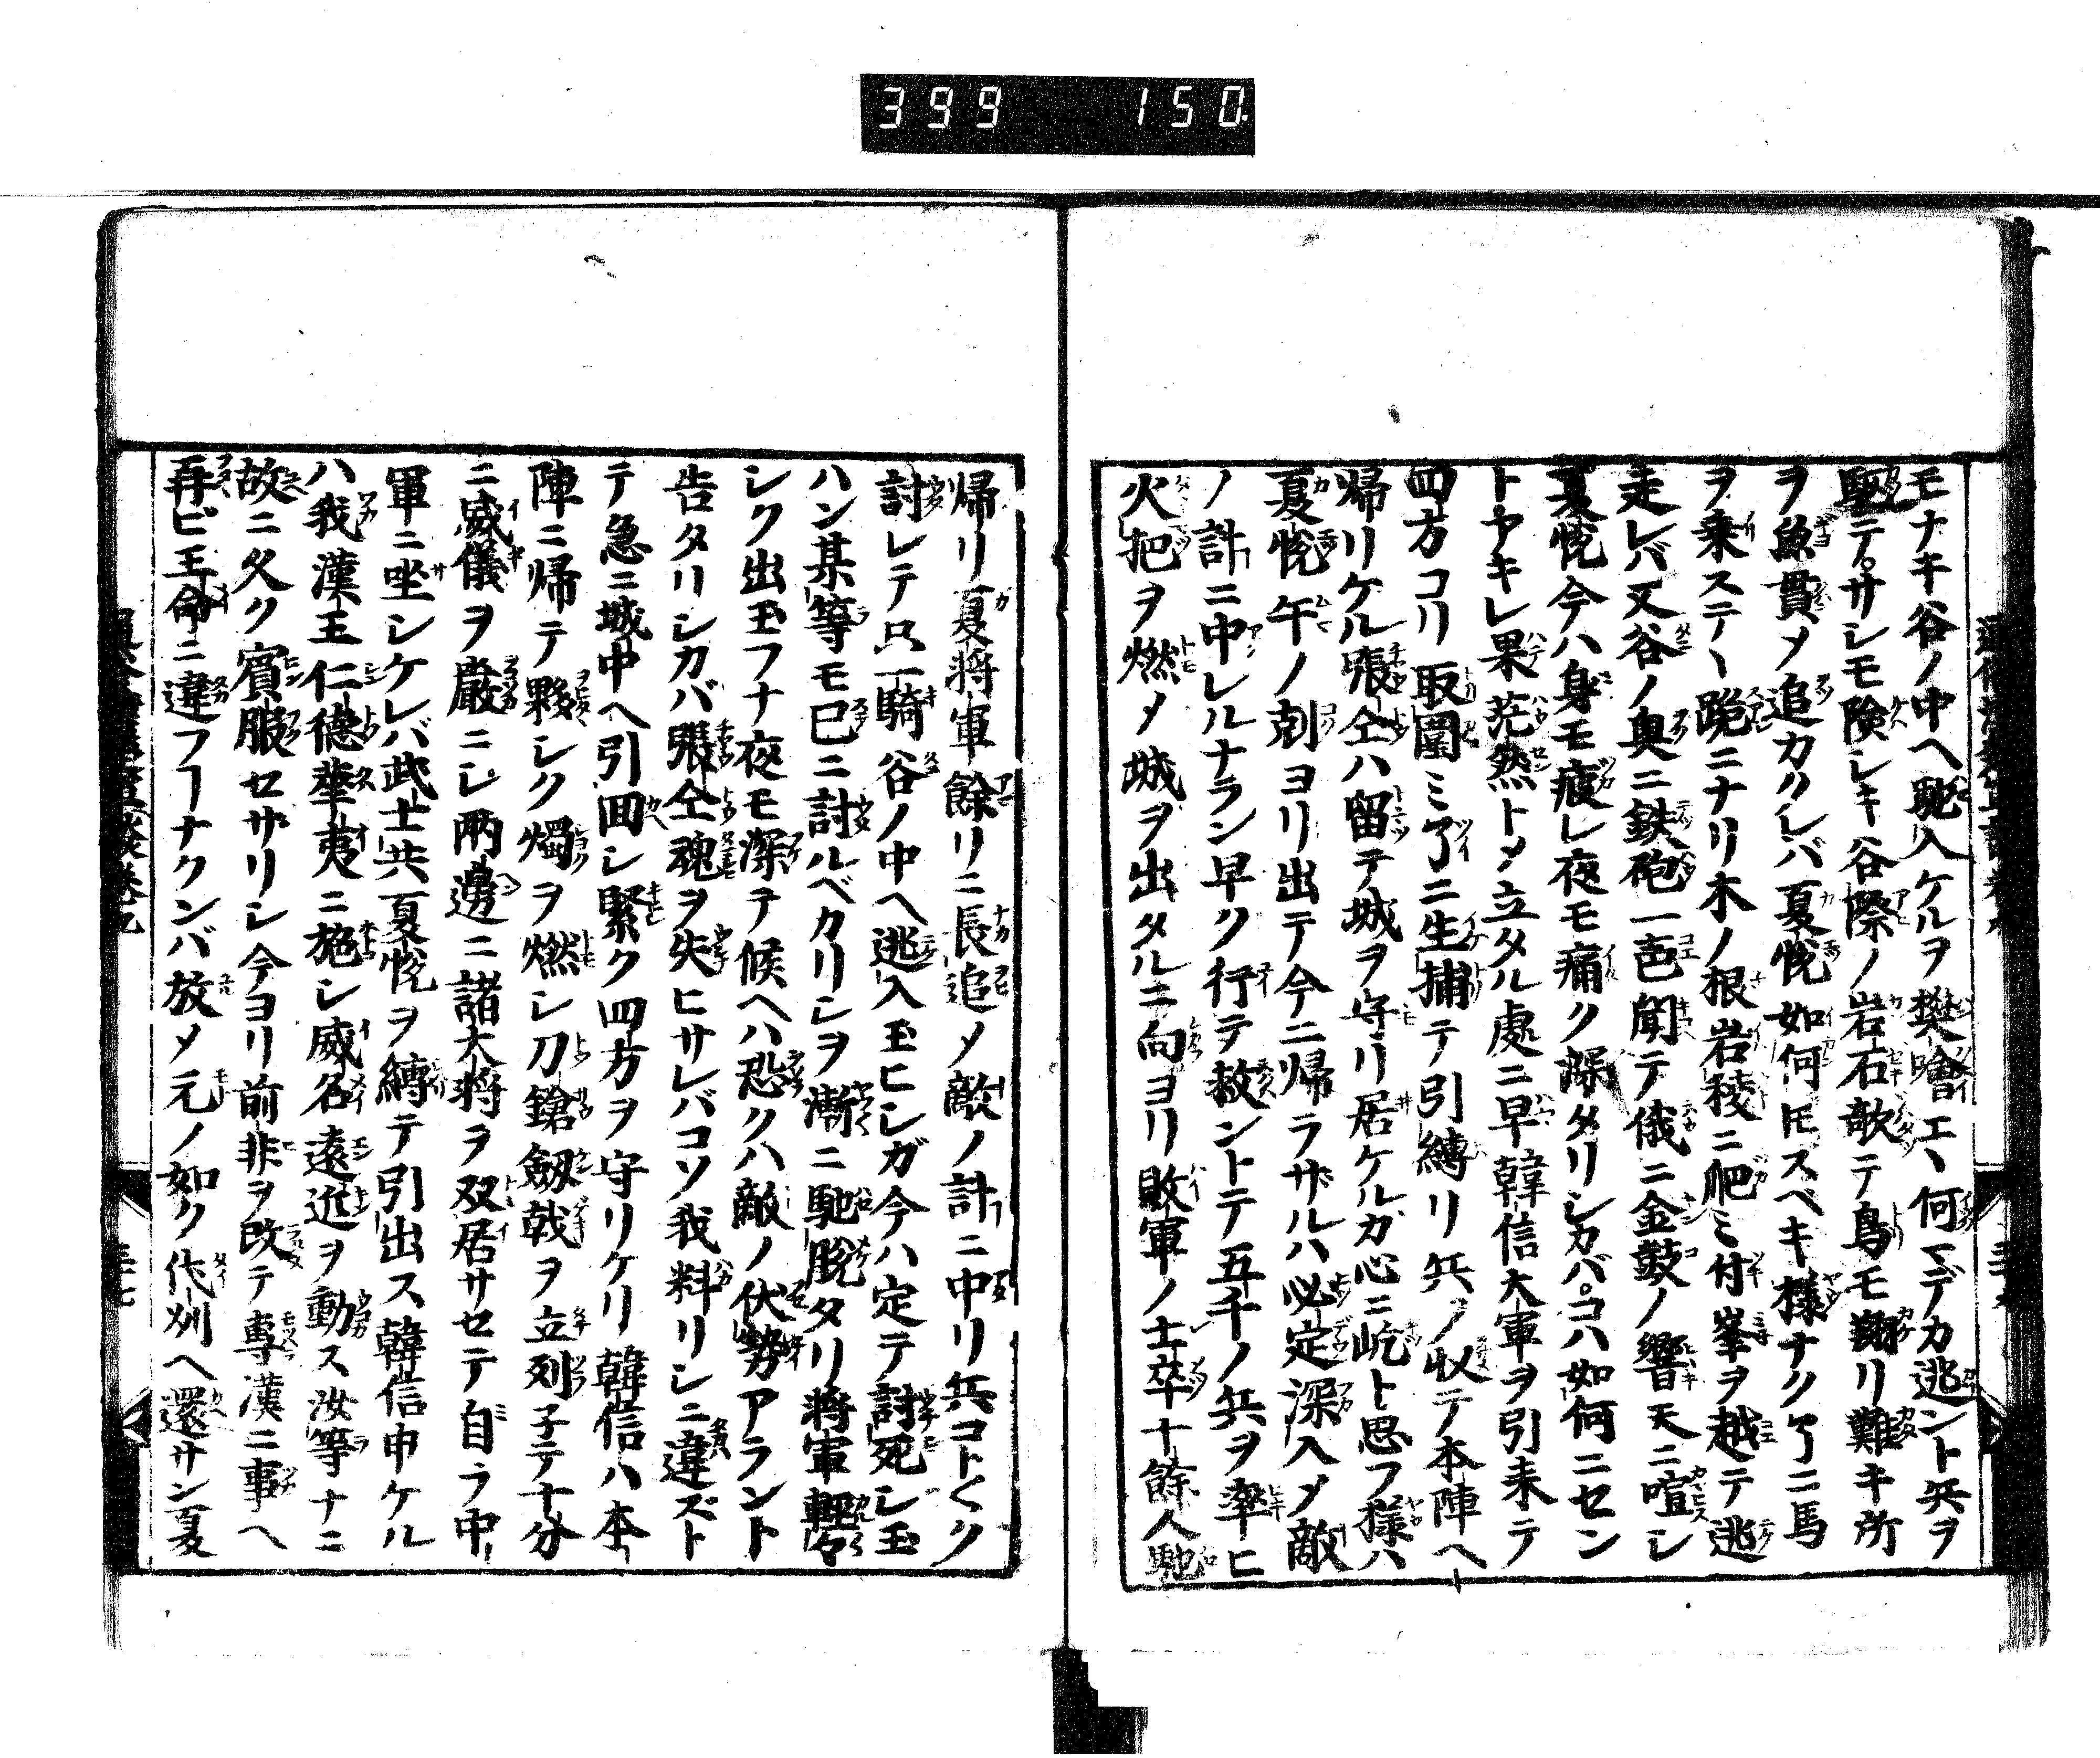 399 150
モナキ谷ノ中ヘ馳入ケルヲ樊噲エヽ何マデカ逃ント兵ヲ
駈テ。サレモ険レキ谷際ノ岩石欹テ鳥モ翔リ難キ所
ヲ魚貫メ追カクレバ夏悦如何ヒスベキ様ナクヿニ馬
ヲ乗ステヽ跪ニナリ木ノ根岩稜ニ爬ミ付峯ヲ越テ逃
走レバ又谷ノ奥ニ鉄砲一声聞テ俄ニ金鼓ノ響天ニ喧レ
夏悦今ハ身モ疲レ夜モ痛ク深タリシカバ。コハ如何ニセン
トアキレ果茫然トメ立タル處ニ早韓信大軍ヲ引来テ
四方コリ取圍ミ了ニ生捕テ引縛リ兵ヲ收テ本陣ヘ
帰リケル張仝ハ留テ城ヲ守リ居ケルカ心ニ屹ト思フ様ハ
夏悦午ノ刻ヨリ出テ今ニ帰ラザルハ必定深入メ敵
ノ計ニ中レルナラン早ク行テ救ントテ五千ノ兵ヲ率ヒ
火把ヲ燃メ城ヲ出タルニ向ヨリ敗軍ノ士卒十餘人馳
帰リ夏将軍餘リニ長追メ敵ノ計ニ中リ兵コト〱ク
討レテ只一騎谷ノ中ヘ逃入玉ヒレガ今ハ定テ討死レ玉
ハン某等モ已ニ討ルベカリレヲ漸ニ馳脱タリ将軍輕々
レク出玉フナ夜モ深テ候ヘハ恐クハ敵ノ伏勢アラント
告タリシカバ張仝魂ヲ失ヒサレバコソ我料リレニ違ズト
テ急ニ城中ヘ引回レ緊ク四方ヲ守リケリ韓信ハ本
陣ニ帰テ夥レク燭ヲ燃レ刀鎗劔戟ヲ立列子テ十分
ニ威儀ヲ嚴ニレ兩邊ニ諸大将ヲ双居サセテ自ラ中
軍ニ坐シケレバ武士共夏悦ヲ縛テ引出ス韓信申ケル
ハ我漢王仁德華夷ニ施レ威名遠近ヲ動ス汝等ナニ
故ニ久ク賓服セザリレ今ヨリ前非ヲ改テ專漢ニ事ヘ
再ビ王命ニ違フーナクンバ放メ元ノ如ク代州ヘ還サン夏